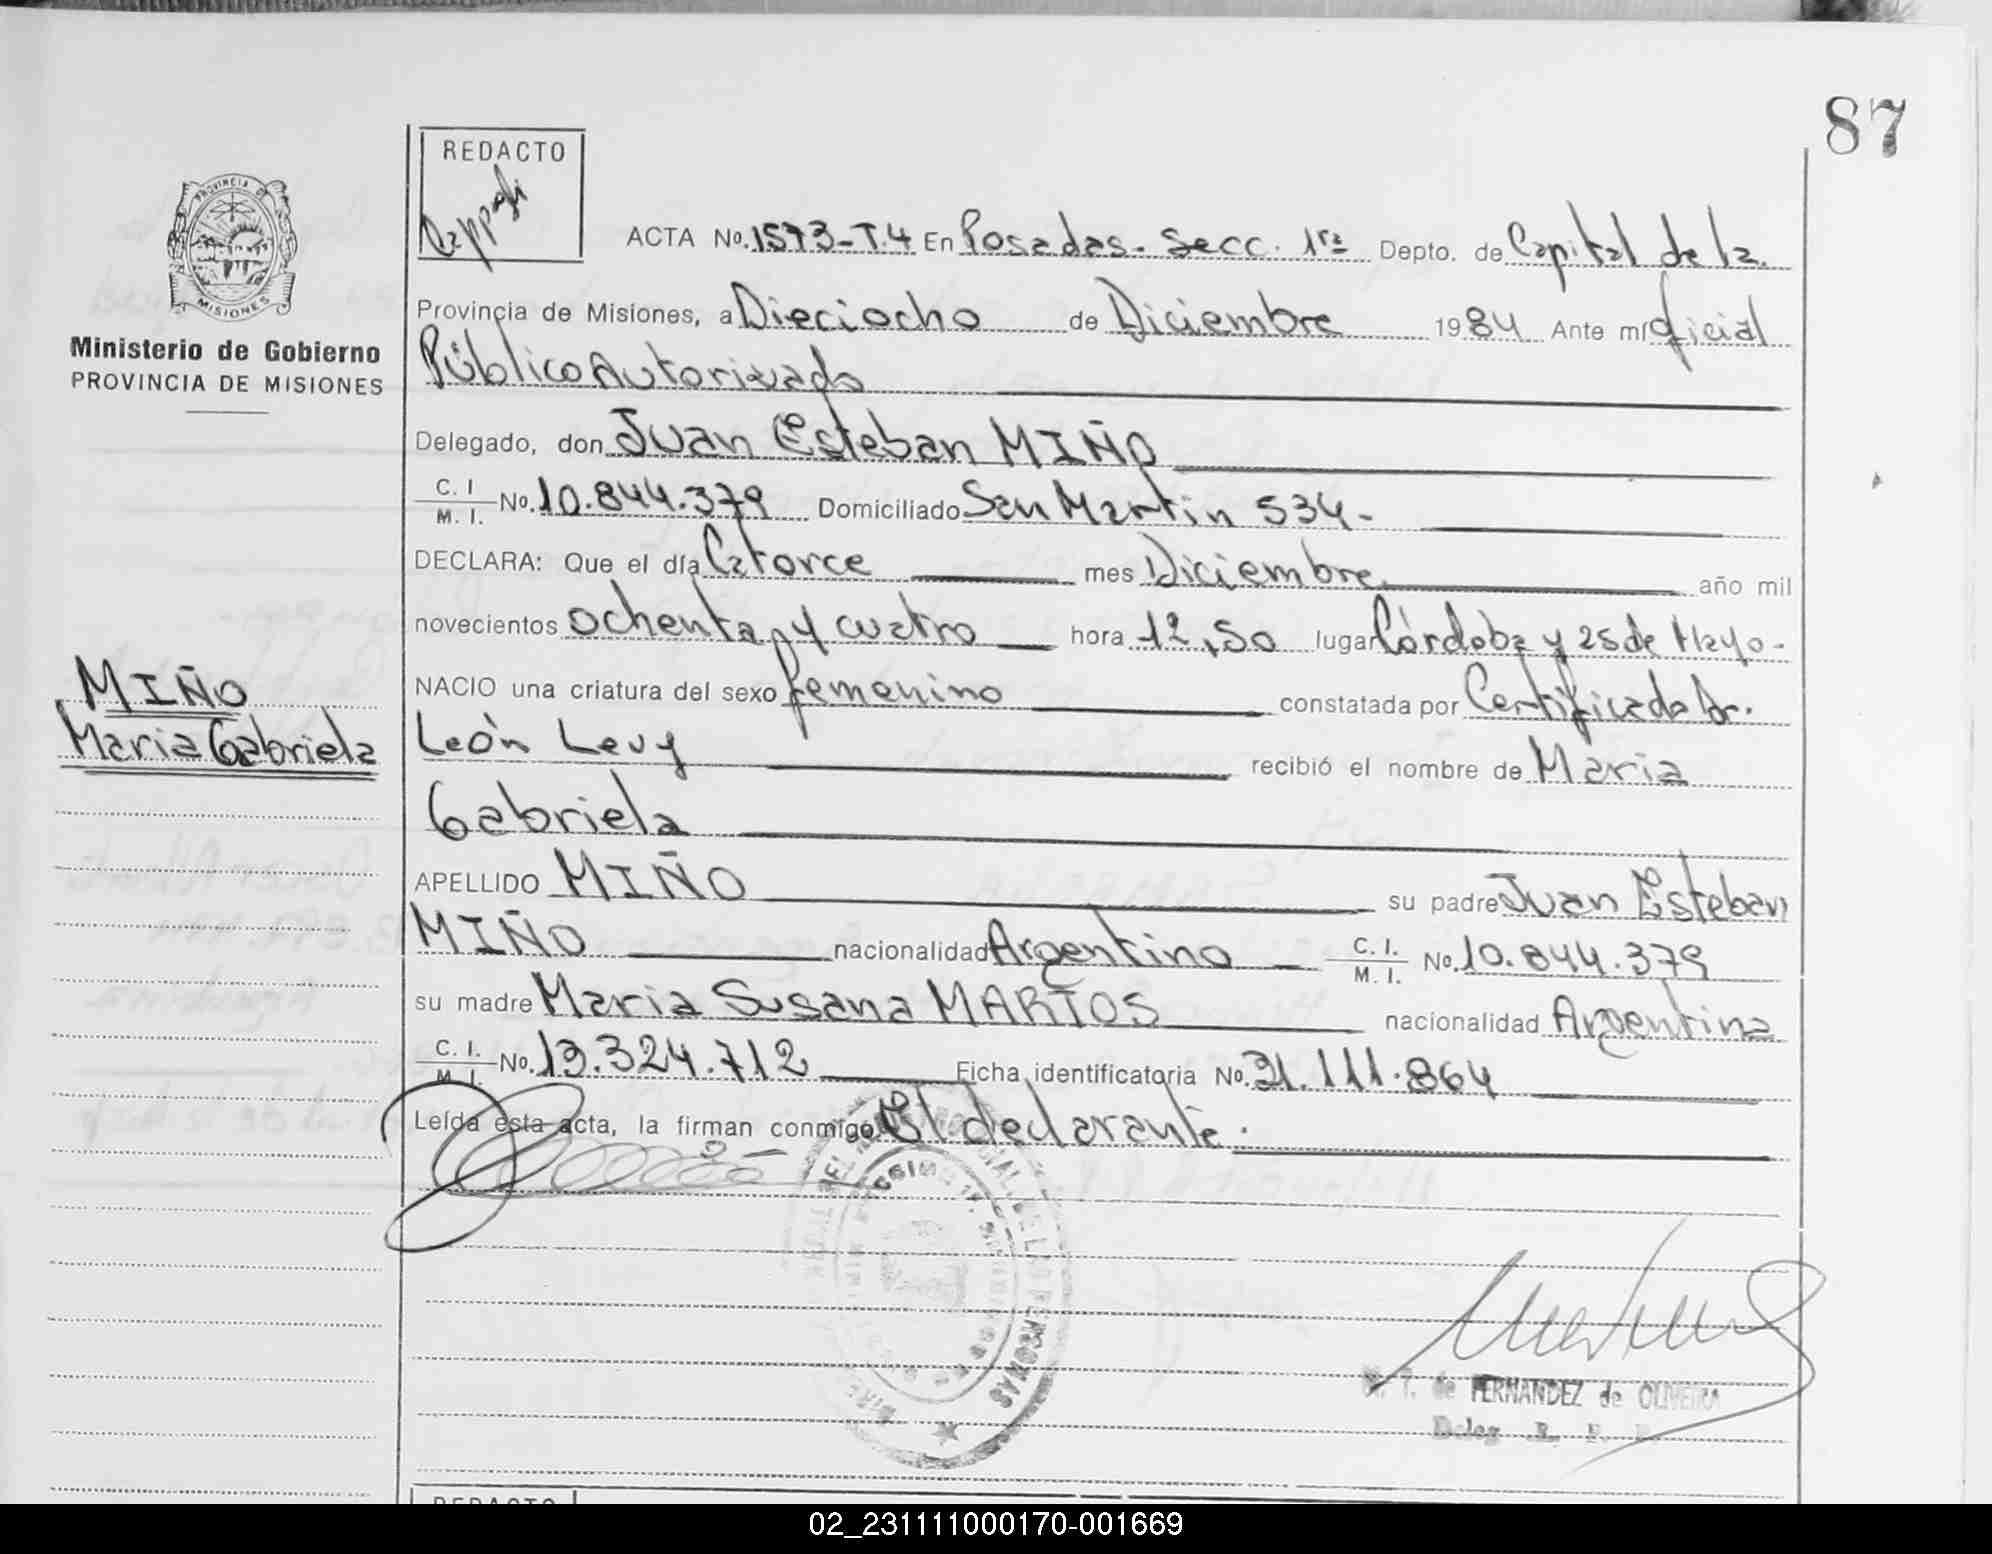 87
REDACTO
ACTA No. 1573-T.4 En Posadas - Secc. 1ra Depto. de Capital de la
Provincia de Misiones, a Dieciocho de Diciembre 1984 Ante mí Oficial
Público Autorizado
Delegado, don Juan Esteban MIÑO
C. I. / M. I. No. 10.844.379 Domiciliado San Martin 534-
DECLARA: Que el día Catorce mes Diciembre año mil
novecientos ochenta y cuatro hora 12,50 lugar Córdoba y 25 de Mayo-
NACIO una criatura del sexo femenino constatada por Certificado Dr.
León Levy recibió el nombre de Maria
Gabriela
APELLIDO MIÑO su padre Juan Esteban
MIÑO nacionalidad Argentino C. I. / M. I. No. 10.844.379
su madre Maria Susana MARTOS nacionalidad Argentina
C. I. / M. I. No. 13.324.712 Ficha identificatoria No. 31.111.864
Leída esta acta, la firman conmigo El declarante.
PROVINCIA DE
MISIONES
Ministerio de Gobierno
PROVINCIA DE MISIONES
MIÑO
Maria Gabriela
PERSONAS
T. de FERNANDEZ de OLIVEIRA
Deleg. R.
REDACTO
02_231111000170-001669